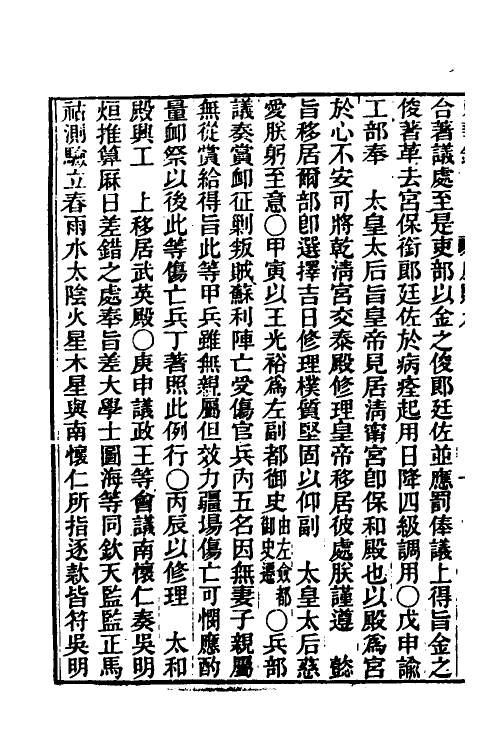 台著議處至是吏部以金之俊郎廷佐並應罰俸議上得旨金之
俊著革去宮保銜郎廷佐於病痊起用日降四級調用○戊申諭
工部奉　太皇太后旨皇帝見居淸甯宮卽保和殿也以殿爲宮
於心不安可將乾淸宮交泰殿修理皇帝移居彼處朕謹遵　懿
旨移居爾部卽選擇吉日修理樸質堅固以仰副　太皇太后慈
愛朕躬至意○甲寅以王光裕爲左副都御史由左僉都御史遷○兵部
議奏賞卹征剿叛賊蘇利陣亡受傷官兵內五名因無妻子親屬
無從賞給得旨此等甲兵雖無親屬但效力疆場傷亡可憫應酌
量卹祭以後此等傷亡兵丁著照此例行○丙辰以修理　太和
殿興工　上移居武英殿○庚申議政王等會議南懷仁奏吳明
烜推算厤日差錯之處奉旨差大學士圖海等同欽天監監正馬
祜測驗立春雨水太陰火星木星與南懷仁所指逐款皆符吳明